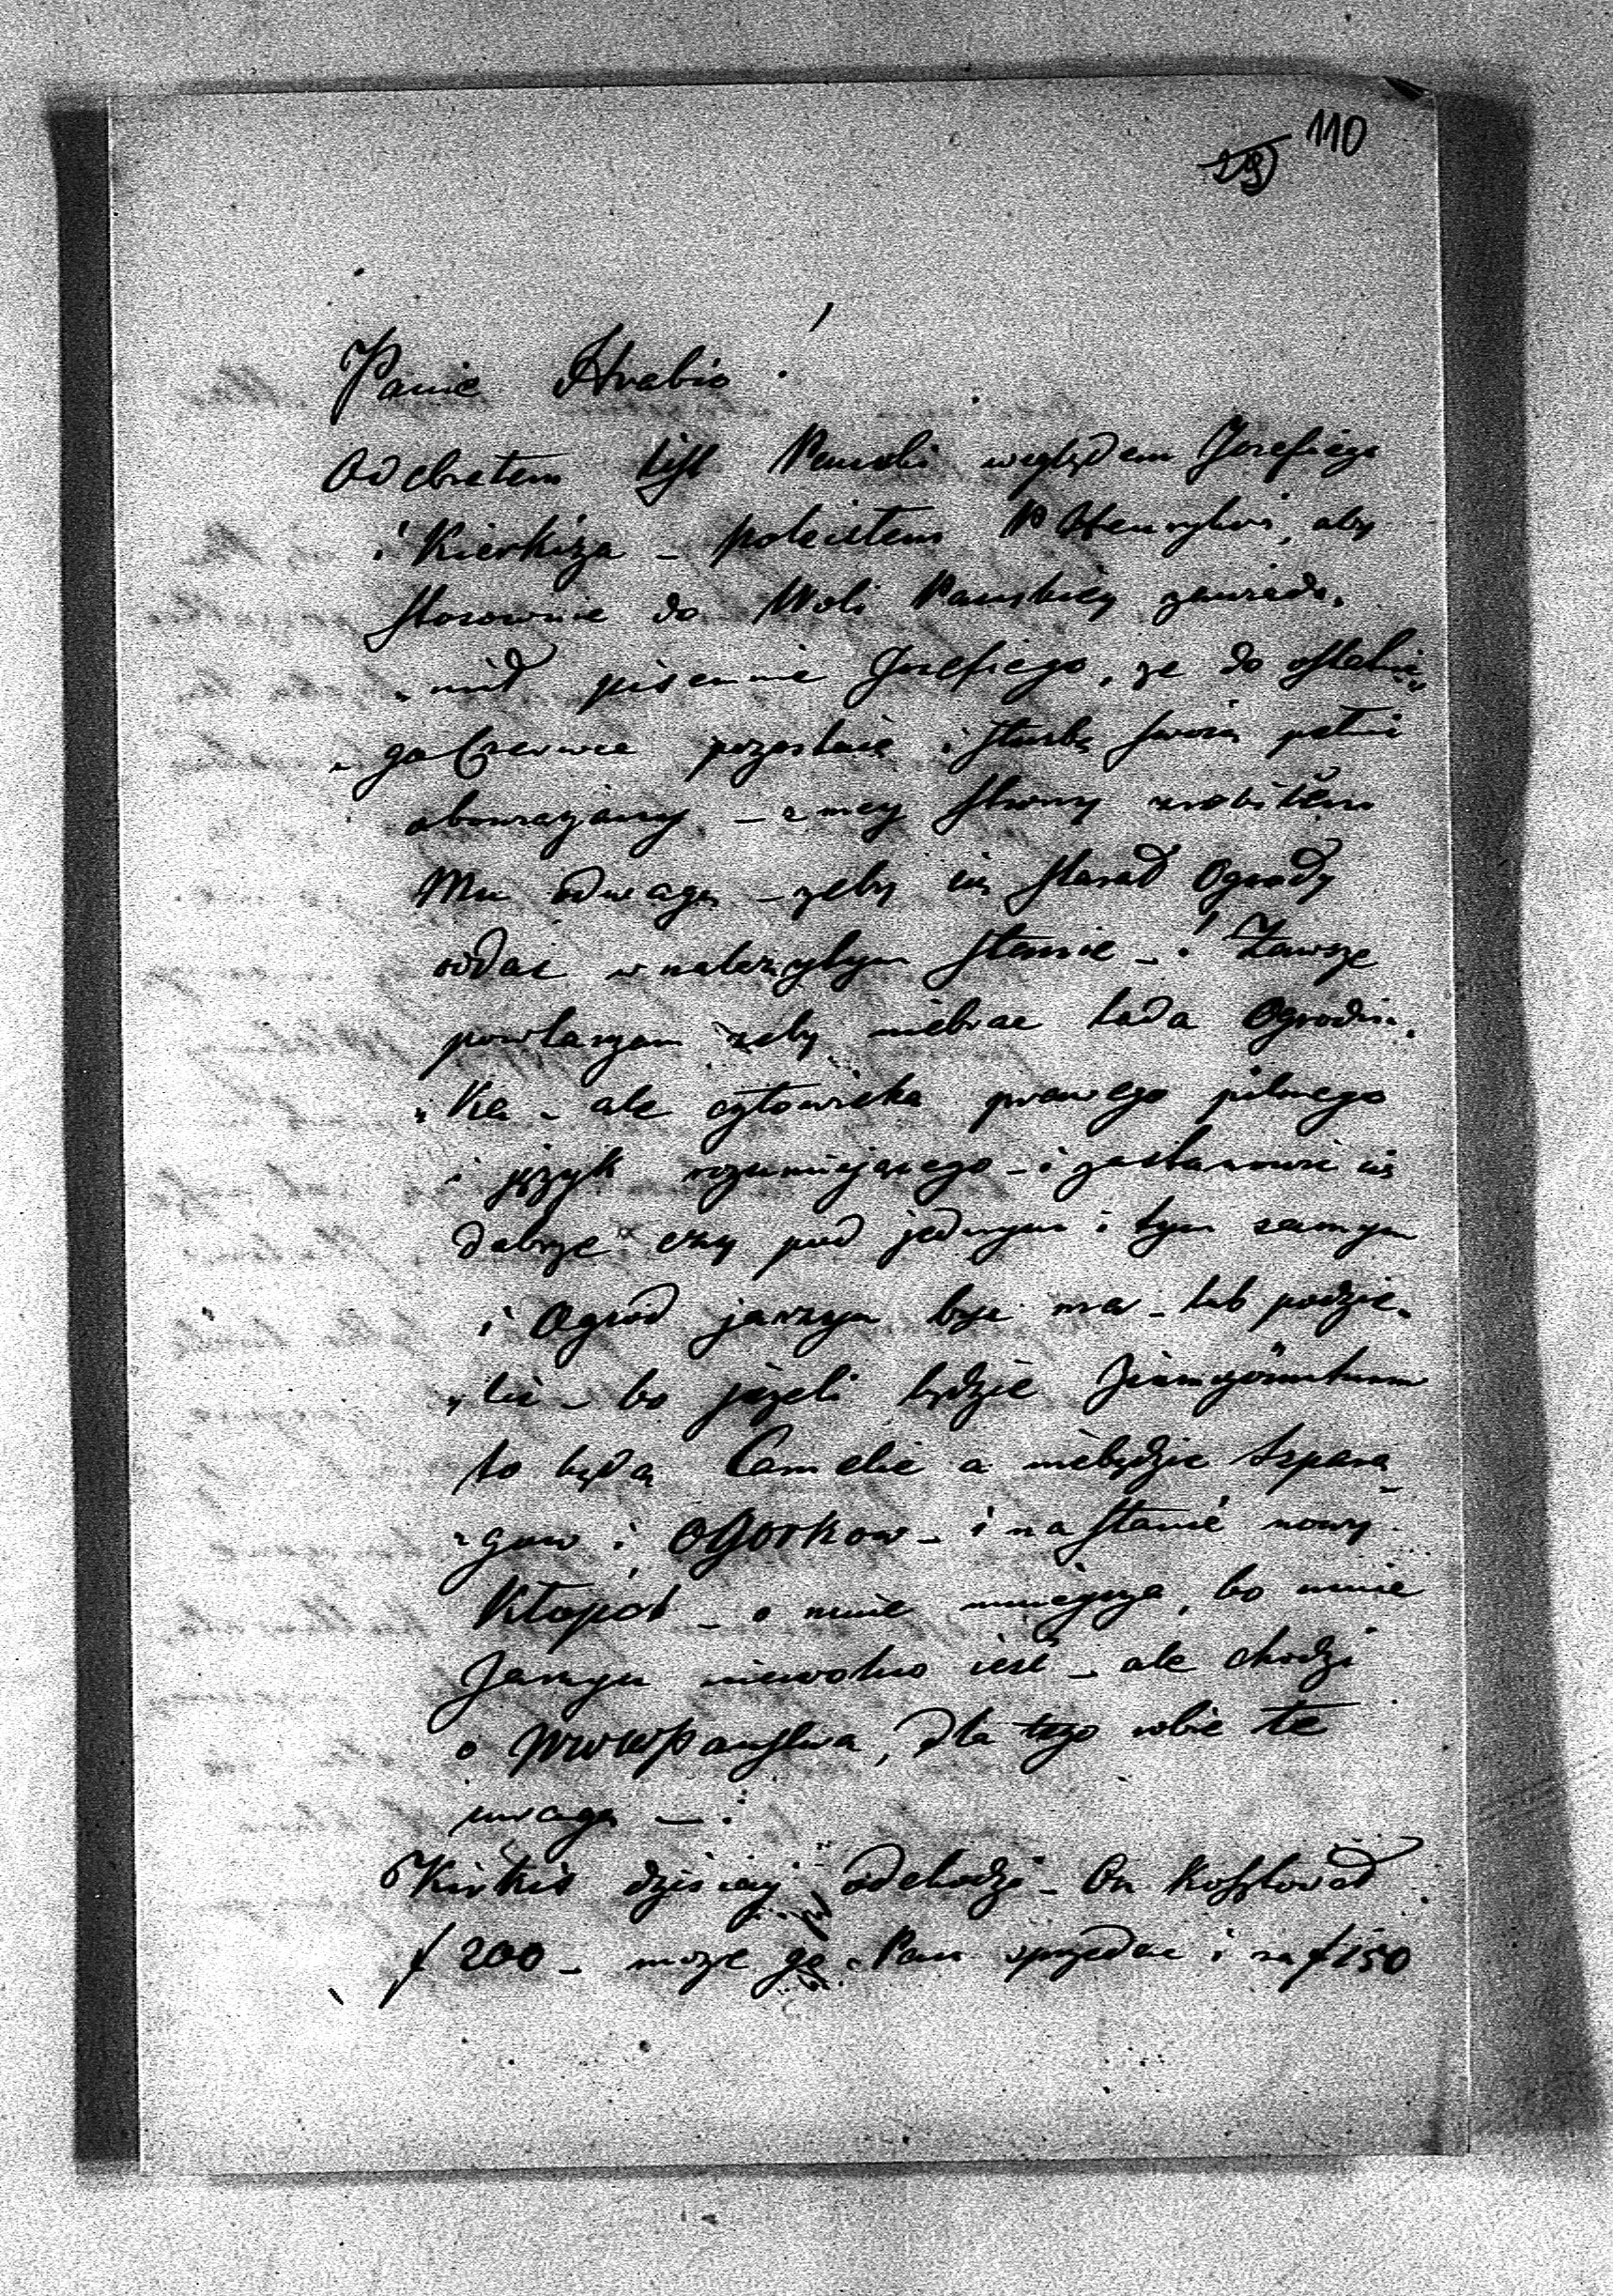 110
Panie Hrabio !
Odebrałem list Pański względem Josefiego
i Kierkiza – poleciłem P Henrykowi, aby
stosownie do Woli Pańskiey zawiado„
„mił pisemnie Josefiego, ze do ostatnie„
„go Czerwca pozostaie i służbę swoią pełnić
obowiązany – z mey strony zrobiłem
Mu uwagę – zeby się starał Ogrody
oddac w nalezytym stanie – ! Zawsze
powtarzam zeby niebrac lada Ogrodni„
„Ka – ale człowieka prawego pilnego
i język rozumiejącego – i zastanowic się
dobrze czy pod jednym i tym samym
i Ogrod jarzyn byc ma – lub podzie„
„lic – bo jezeli będzie
to będą Camelie a niebędzie Szpara„
„gow i OGorkow – i nastanie nowy
Kłopot – o mnie mnieysza, bo mnie
Jarzyn niewolno ieść – ale chodzi
o WWWPanstwa, dla tego robie te
uwagę – :
Kirkis dzisiay odchodzi – On Kosztował
f 200 – moze go Pan sprzedac i za f 150